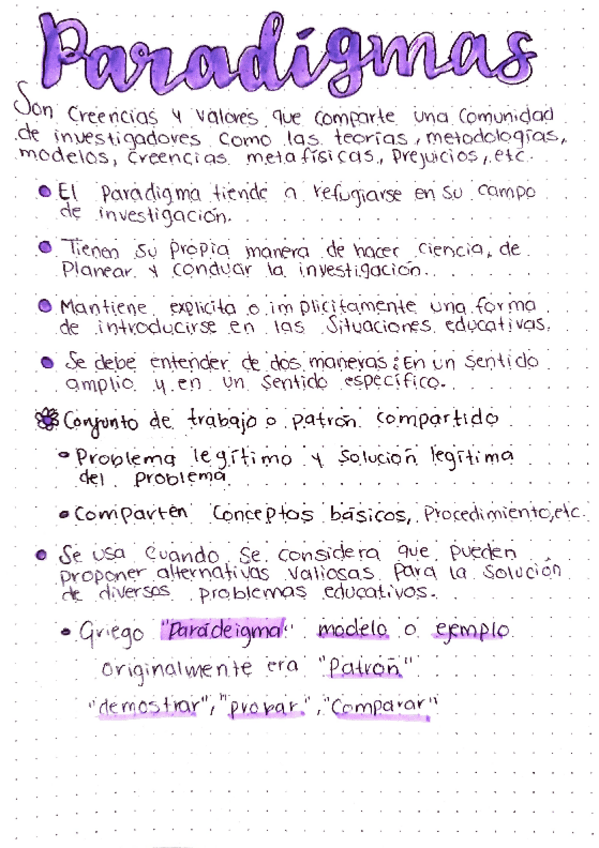 Paradigmas
Son Creencias y valores que comparte una comunidad
de investigadores como las teorías, metodologías,
modelos, creencias metafísicas, prejuicios, etc.
El Paradigma tiende a refugiarse en su campo
de investigación.
Tienen su propia manera de hacer ciencia, de
Planear y conducir la investigación.
Mantiene explicita o implicitamente una forma
de introducirse en las Situaciones educativas.
Se debe entender de dos maneras: En un sentido
amplio y en un sentido específico.
Conjunto de trabajo o patrón compartido
Problema legítimo y solución legítima
del problema
Comparten Conceptos básicos, Procedimiento, etc.
Se usa Cuando se considera que pueden
proponer alternativas valiosas para la solución
de diversos problemas educativos.
Griego "Paradeigma" modelo o ejemplo
originalmente era "Patrón"
"demostrar", "probar", "Comparar"